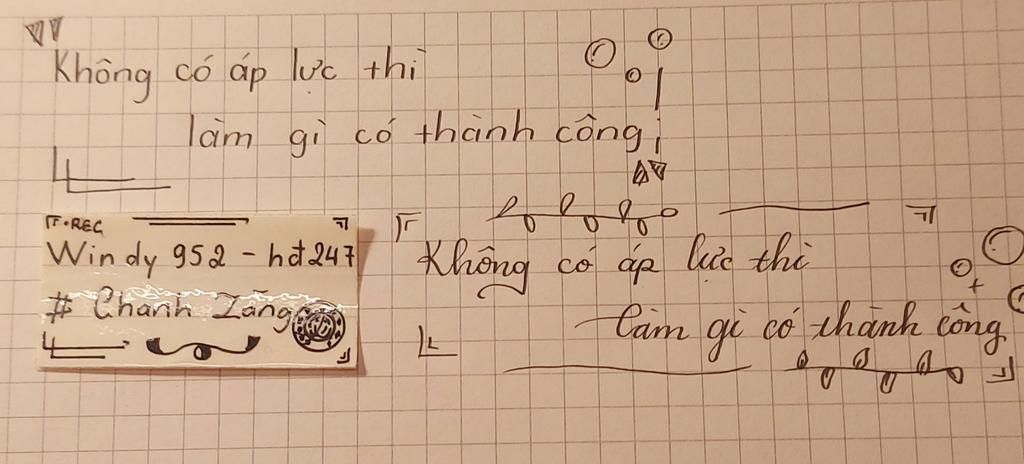 Không có áp lực thì
làm gì có thành công
r.REC
Windy 952 - hđ247
# Chanh Zăng
Không có áp lực thì
làm gì có thành công